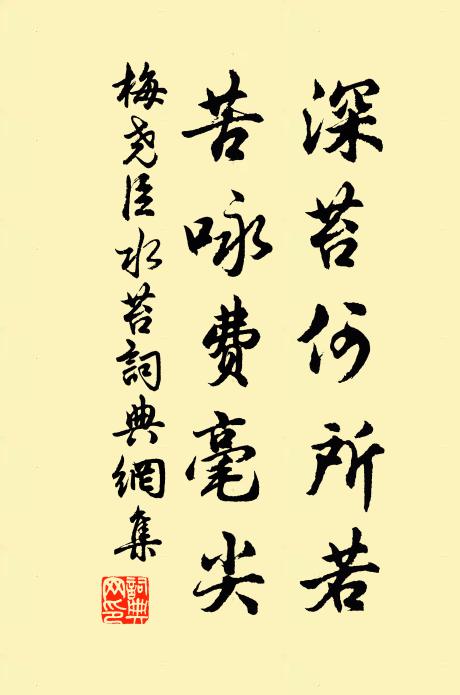 深苔何所若
苦咏費毫尖
梅尧臣水苔詞典網集
詞典網印